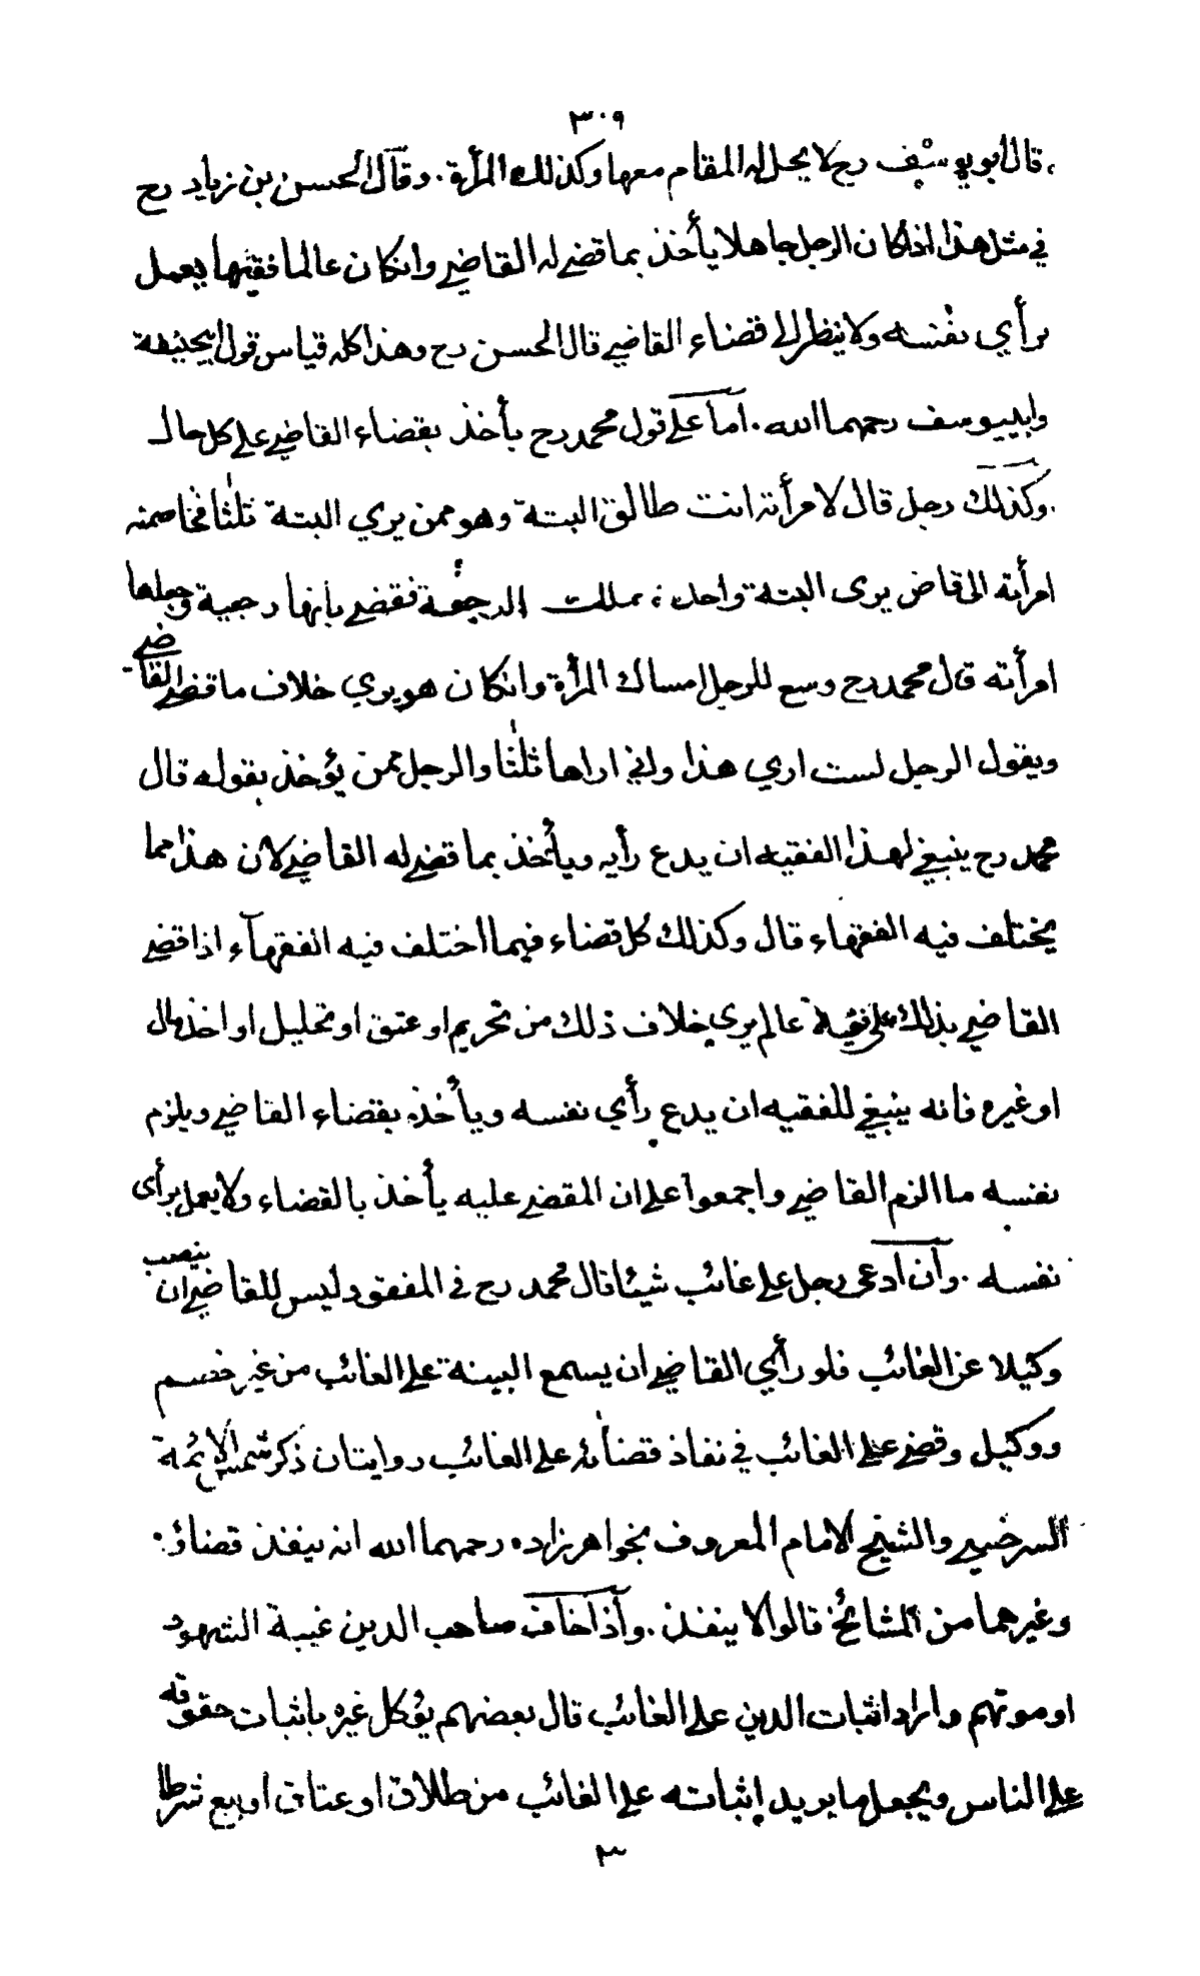 ٣٠٩
قال ابو يوسف رح لا يحل له المقام معها وكذلك المرأة . وقال الحسن بن زياد رح
في مثل هذا اذا كان الرجل جاهلا يأخذ بما قضى له القاضي وان كان عالما فقيها يعمل
برأي نفسه ولا ينظر الى قضاء القاضي قال الحسن رح وهذا كله قياس قول ابيحنيفة
وابييوسف رحمهما الله . اما على قول محمد رح يأخذ بقضاء القاضي على كل حال
. وكذلك رجل قال لامرأته انت طالق البتة وهو ممن يري البتة ثلثا فخاصمته
امرأته الى قاض يرى البتة واحدة يملك الرجعة فقضى بانها رجعية وجعلها
امرأته قال محمد رح وسع للرجل امساك المرأة وان كان هو يري خلاف ما قضى القاضي
ويقول الرجل لست اري هذا واني اراها ثلثا والرجل ممن يؤخذ بقوله قال
محمد رح ينبغي لهذا الفقيه ان يدع رأيه ويأخذ بما قضى له القاضي لان هذا مما
يختلف فيه الفقهاء قال وكذلك كل قضاء فيما اختلف فيه الفقهآء اذا قضى
القاضي بذلك على فقيه عالم يرى خلاف ذلك من تحريم او عتق او تحليل او اخذ مال
او غيره فانه ينبغي للفقيه ان يدع رأي نفسه ويأخذ بقضاء القاضي ويلزم
نفسه ما الزم القاضي واجمعوا على ان المقضى عليه يأخذ بالقضاء ولا يعمل برأى
نفسه . وان ادعى رجل على غائب شيئا قال محمد رح في المفقود ليس للقاضي ان ينصب
وكيلا عن الغائب فلو رأى القاضي ان يسمع البينة على الغائب من غير خصم
ووكيل وقضى على الغائب في نفاذ قضائه على الغائب روايتان ذكر شمس الائمة
السرخسي والشيخ الامام المعروف بخواهرزاده رحمهما الله انه ينفذ قضاؤه
وغيرهما من المشائخ قالوا لا ينفذ . واذا خاف صاحب الدين غيبة الشهود
او موتهم واراد اثبات الدين على الغائب قال بعضهم يؤكل غيره باثبات حقوقه
على الناس ويجعل ما يريد إثباته على الغائب من طلاق او عتاق او بيع شرطا
٣